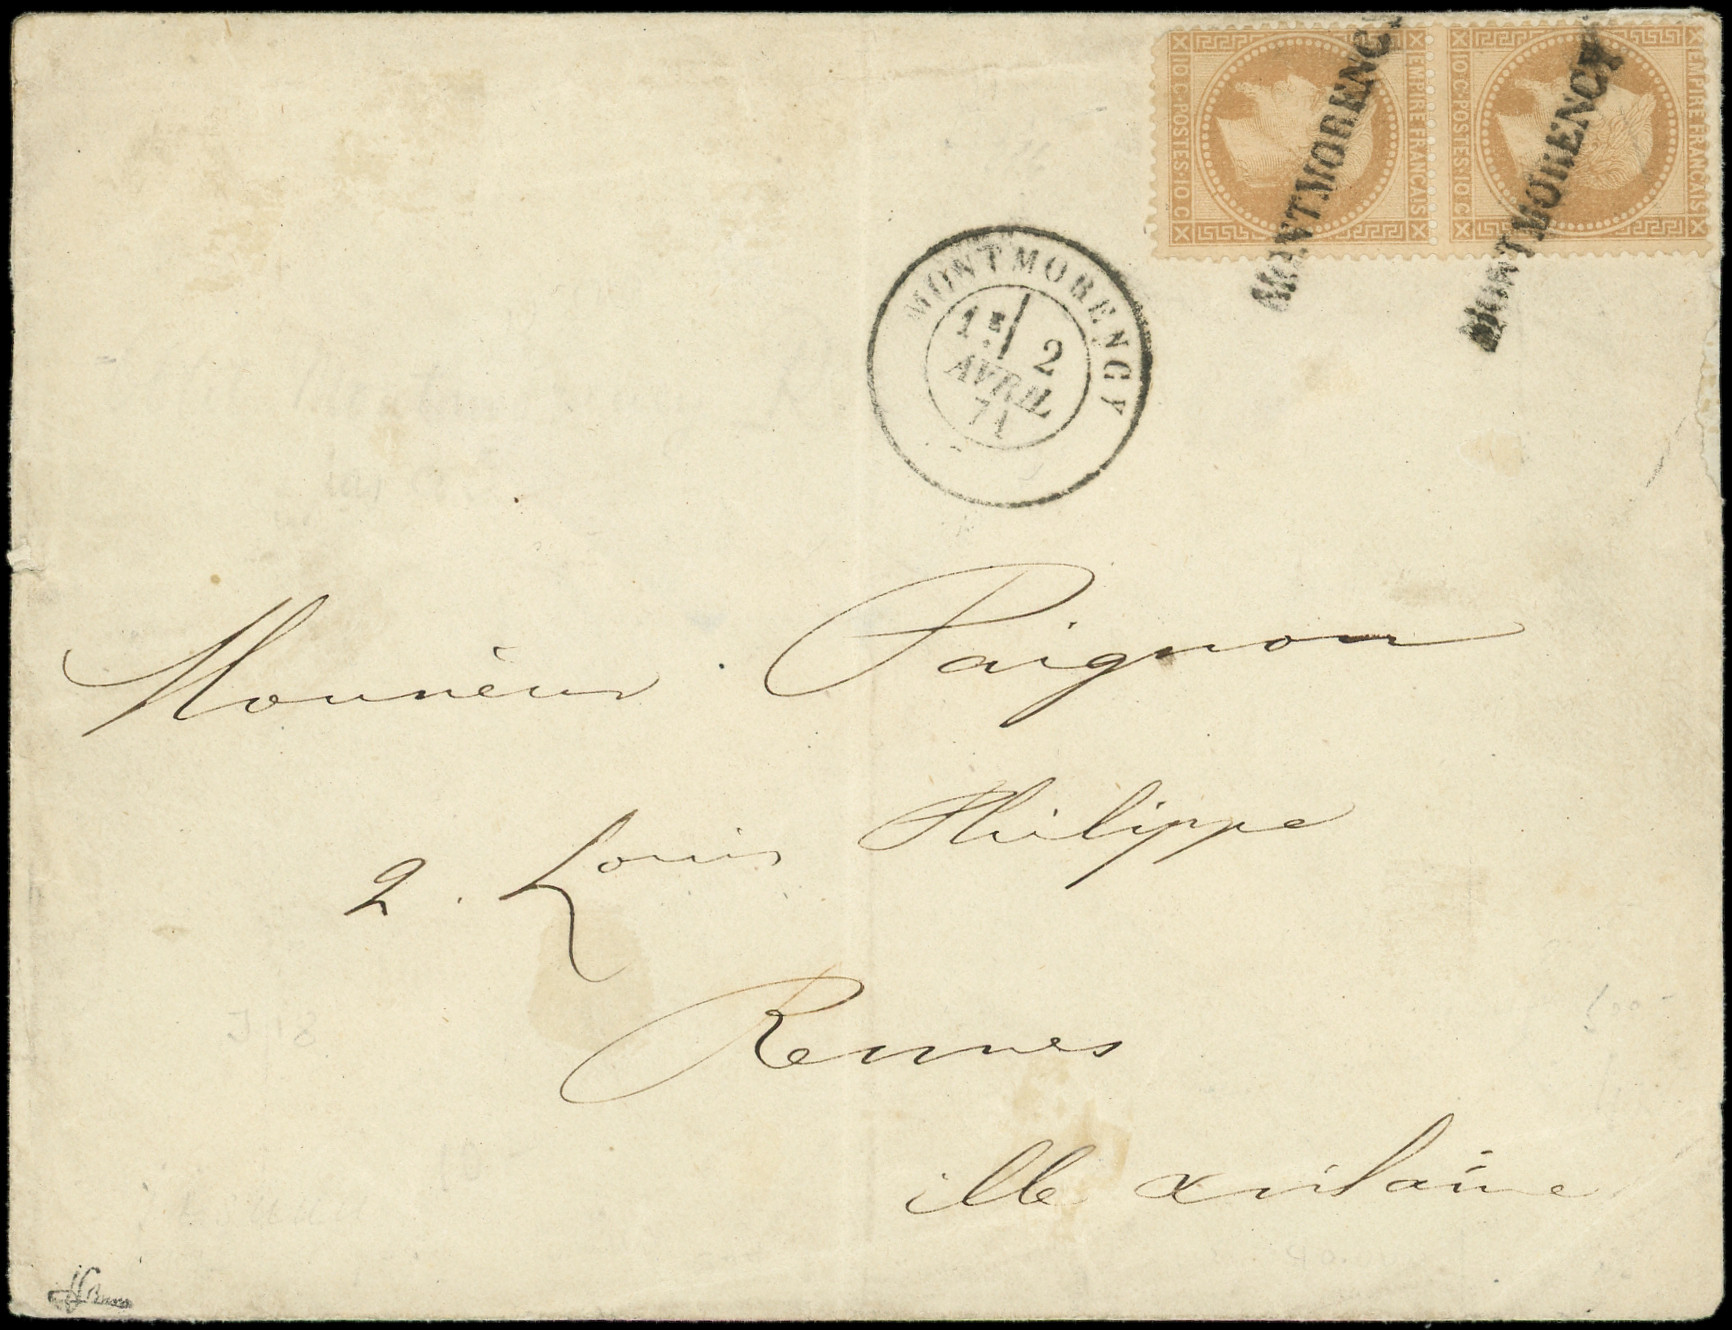 EMPIRE FRANÇAIS
10 C · POSTES · 10 C
EMPIRE FRANÇAIS
10 C · POSTES · 10 C
MONTMORENCY
MONTMORENCY
MONTMORENCY
1E/ 2
AVRIL
71
Monsieur Paignon
2. Louis Philippe
Rennes
ille & vilaine